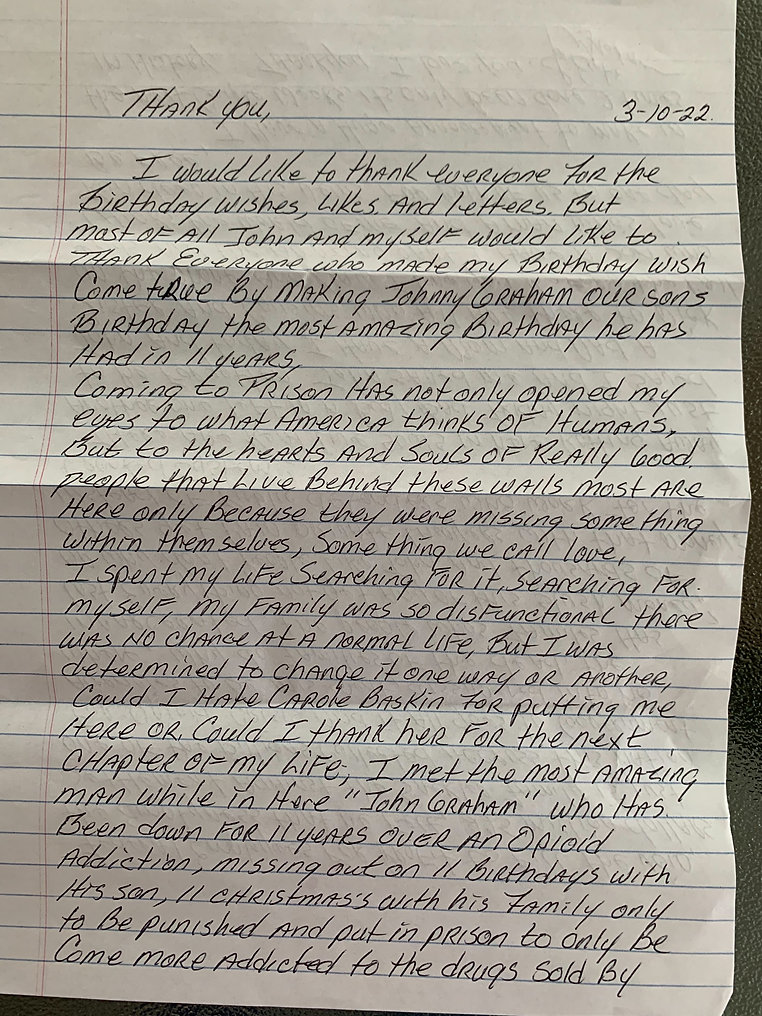 Thank you,
3-10-22.
I would like to thank everyone for the
Birthday wishes, likes, and letters. But
most of all John and myself would like to
thank Everyone who made my Birthday wish
Come true By making Johnny Graham our sons
Birthday the most amazing Birthday he has
Had in 11 years,
Coming to Prison Has not only opened my
eyes to what America thinks of Humans,
But to the hearts and Souls of Really Good.
people that live Behind these walls most are
Here only Because they were missing something
within themselves, Something we call love,
I spent my life Searching for it, Searching for.
myself, my family was so disfunctional there
was no chance at a normal life, But I was
determined to change it one way or another,
Could I Hate Carole Baskin for putting me
Here or Could I thank her for the next
Chapter of my life, I met the most amazing
man while in Here "John Graham" who Has
Been down for 11 years over an Opioid
Addiction, missing out on 11 Birthdays with
His son, 11 Christmas's with his family only
to Be punished and put in prison to only Be
Come more addicted to the drugs sold By